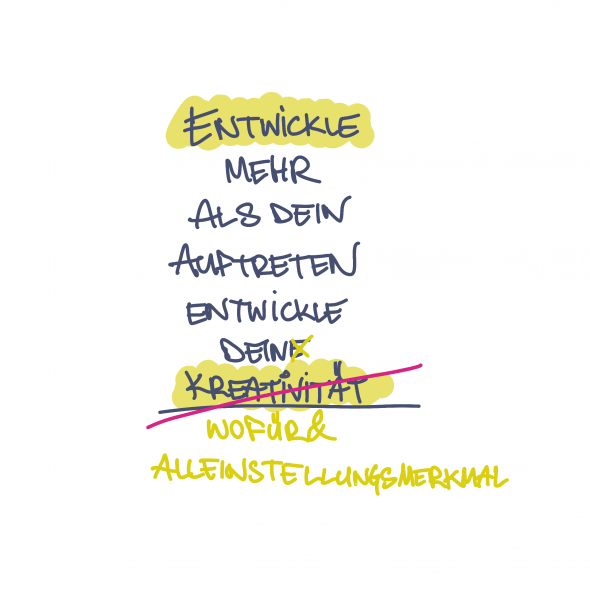 ENTWICKLE
MEHR
ALS DEIN
AUFTRETEN
ENTWICKLE
DEINE
KREATIVITÄT
WOFÜR &
ALLEINSTELLUNGSMERKMAL